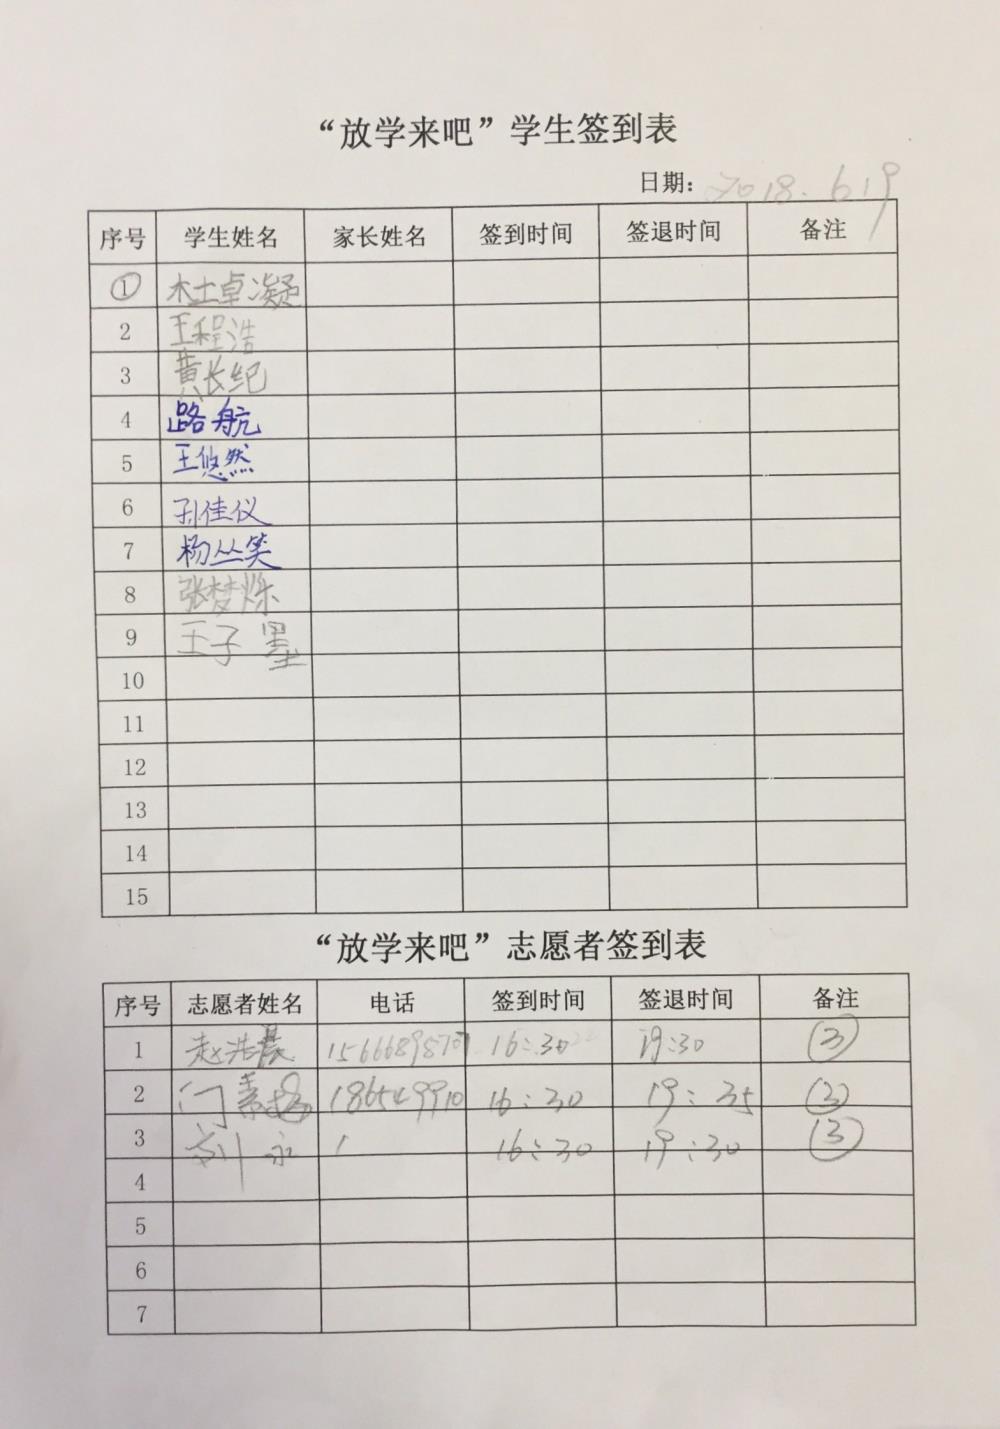 “放学来吧”学生签到表
日期：2018.6.19
序号 学生姓名 家长姓名 签到时间 签退时间 备注
① 杜卓凝
2 王程浩
3 黄长纪
4 路航
5 王悠然
6 孙佳仪
7 杨丛笑
8 张梦烁
9 王子墨
10
11
12
13
14
15
“放学来吧”志愿者签到表
序号 志愿者姓名 电话 签到时间 签退时间 备注
1 赵浩晨 16:30 19:30 ③
2 门素扬 186549910 16:30 19:35 ③
3 刘永 16:30 19:30 ③
4
5
6
7